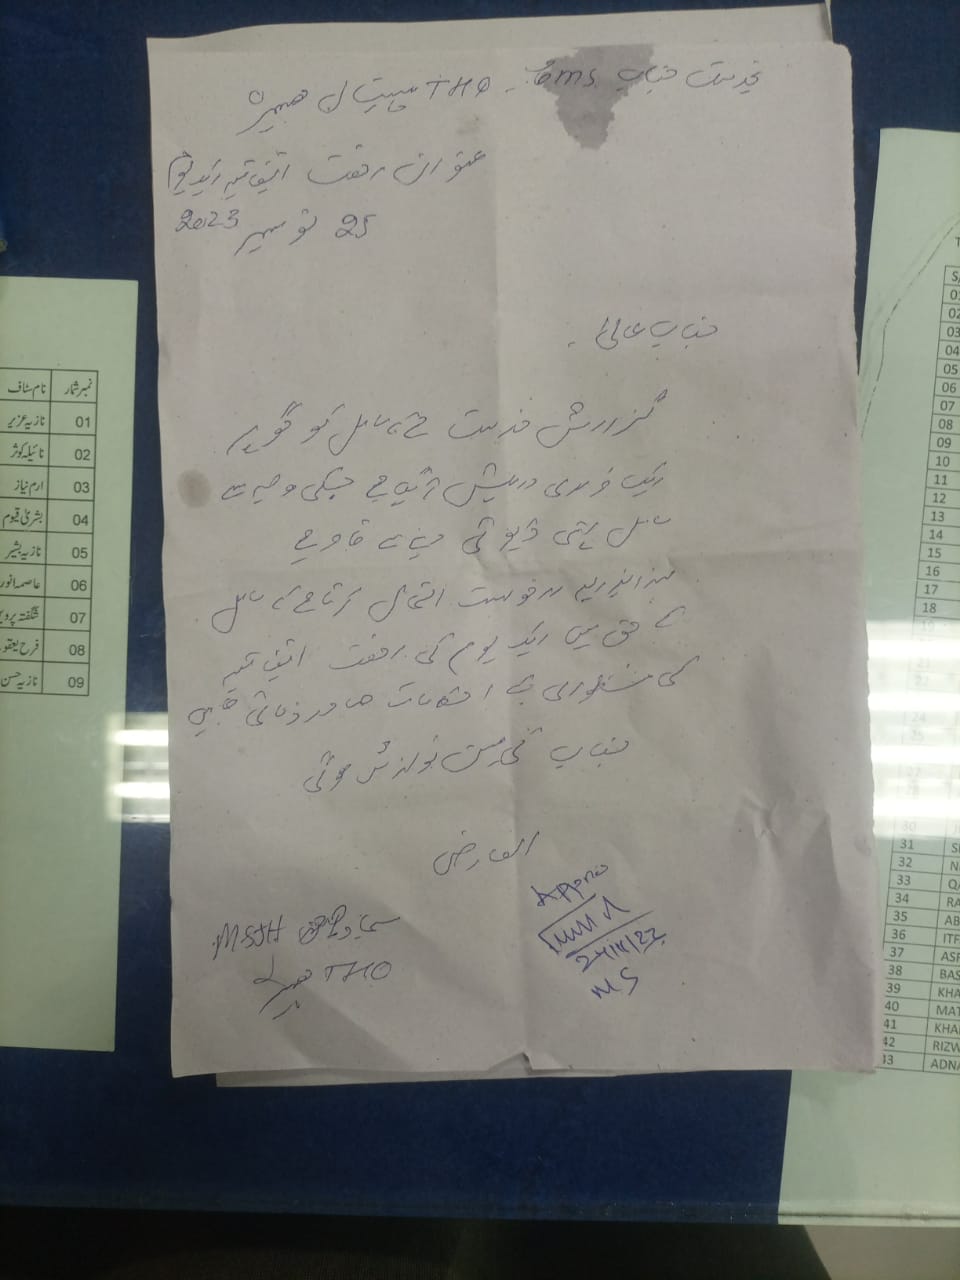 بخدمت جناب MS صاحب THQ ہسپتال ہجیرہ
عنوان رخصت اتفاقیہ ایک یوم
25 نومبر 2023
جناب عالی!
گزارش خدمت ہے کہ سائل کو گھریلو
ایک ضروری درپیش آ گیا ہے جسکی وجہ سے
سائل اپنی ڈیوٹی سے قاصر ہے
لہذا بذریعہ درخواست التماس کرتا ہے کہ سائل
کے حق میں ایک یوم کی رخصت اتفاقیہ
کی منظوری کے احکامات صادر فرمائے جائیں
جناب کی عین نوازش ہوگی
العارض
MS
THQ ہجیرہ
نمبر شمار نام سٹاف
01 نازیہ عزیز
02 نائیلہ کوثر
03 ارم نیاز
04 بشریٰ قیوم
05 نازیہ بشیر
06 عاصمہ انور
07 شگفتہ
08 فرح
09 نازیہ حسن
01
02
03
04
05
06
07
08
09
10
11
12
13
14
15
16
17
18
30
31
32
33
34 RA
35 AB
36 ITF
37
38 BAS
39 KHA
40 MAT
41 KHA
42 RIZW
43 ADNA